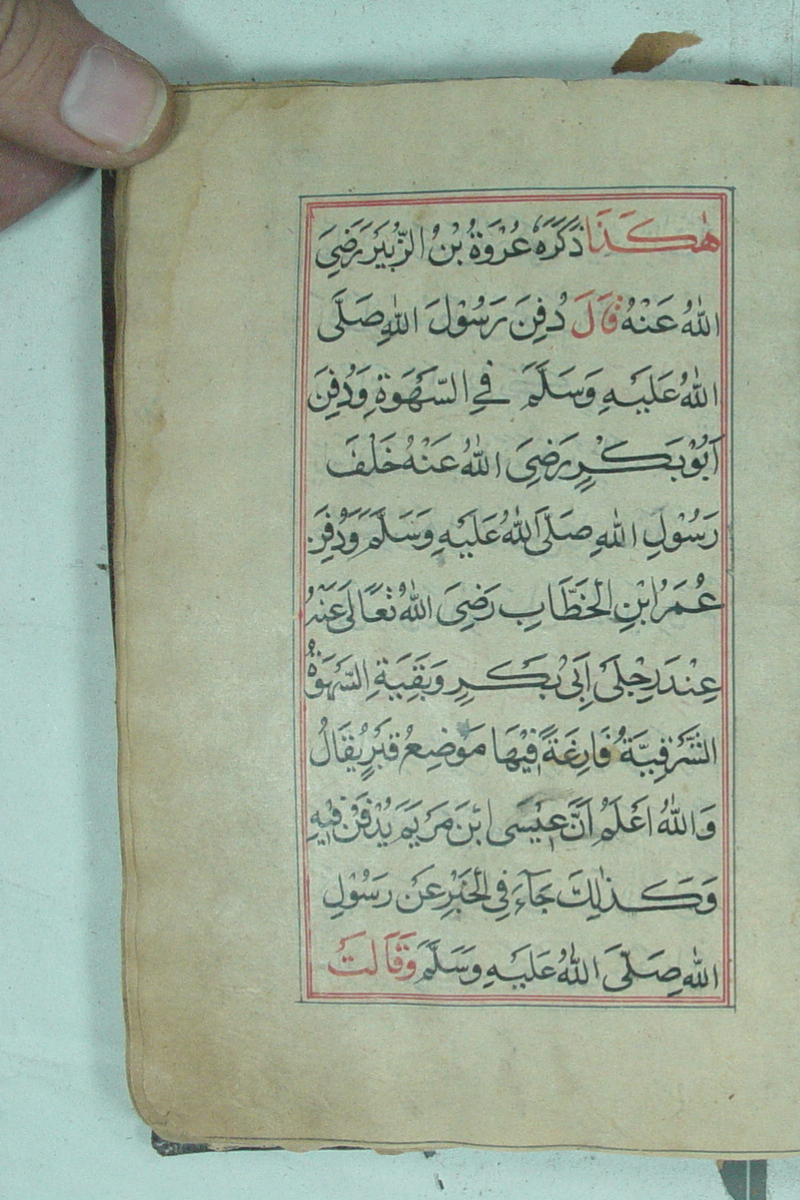 هٰكَذَا ذَكَرَهُ عُرْوَةُ بْنُ الزُّبَيْرِ رَضِيَ
اللهُ عَنْهُ قَالَ دُفِنَ رَسُوْلَ اللهِ صَلَّى
اللهُ عَلَيْهِ وَسَلَّمَ فِي السَّهْوَةِ وَدُفِنَ
اَبُوْ بَكْرٍ رَضِيَ اللهُ عَنْهُ خَلْفَ
رَسُوْلِ اللهِ صَلَّى اللهُ عَلَيْهِ وَسَلَّمَ وَدُفِنَ
عُمَرُ ابْنِ الْخَطَّابِ رَضِيَ اللهُ تَعَالَى عَنْهُ
عِنْدَ رِجْلَىْ اَبِىْ بَكْرٍ وَبَقِيَةِ السَّهْوَةُ
الشَّرْقِيَّةُ فَارِغَةً فِيْهَا مَوْضِعُ قَبْرٍ يُقَالُ
وَاللهُ اَعْلَمُ اَنَّ عِيْسَى ابْنَ مَرْيَمَ يُدْفَنُ فِيْهِ
وَكَذٰلِكَ جَآءَ فِى الْخَبَرِ عَنْ رَسُوْلِ
اللهِ صَلَّى اللهُ عَلَيْهِ وَسَلَّمَ وَقَالَتْ